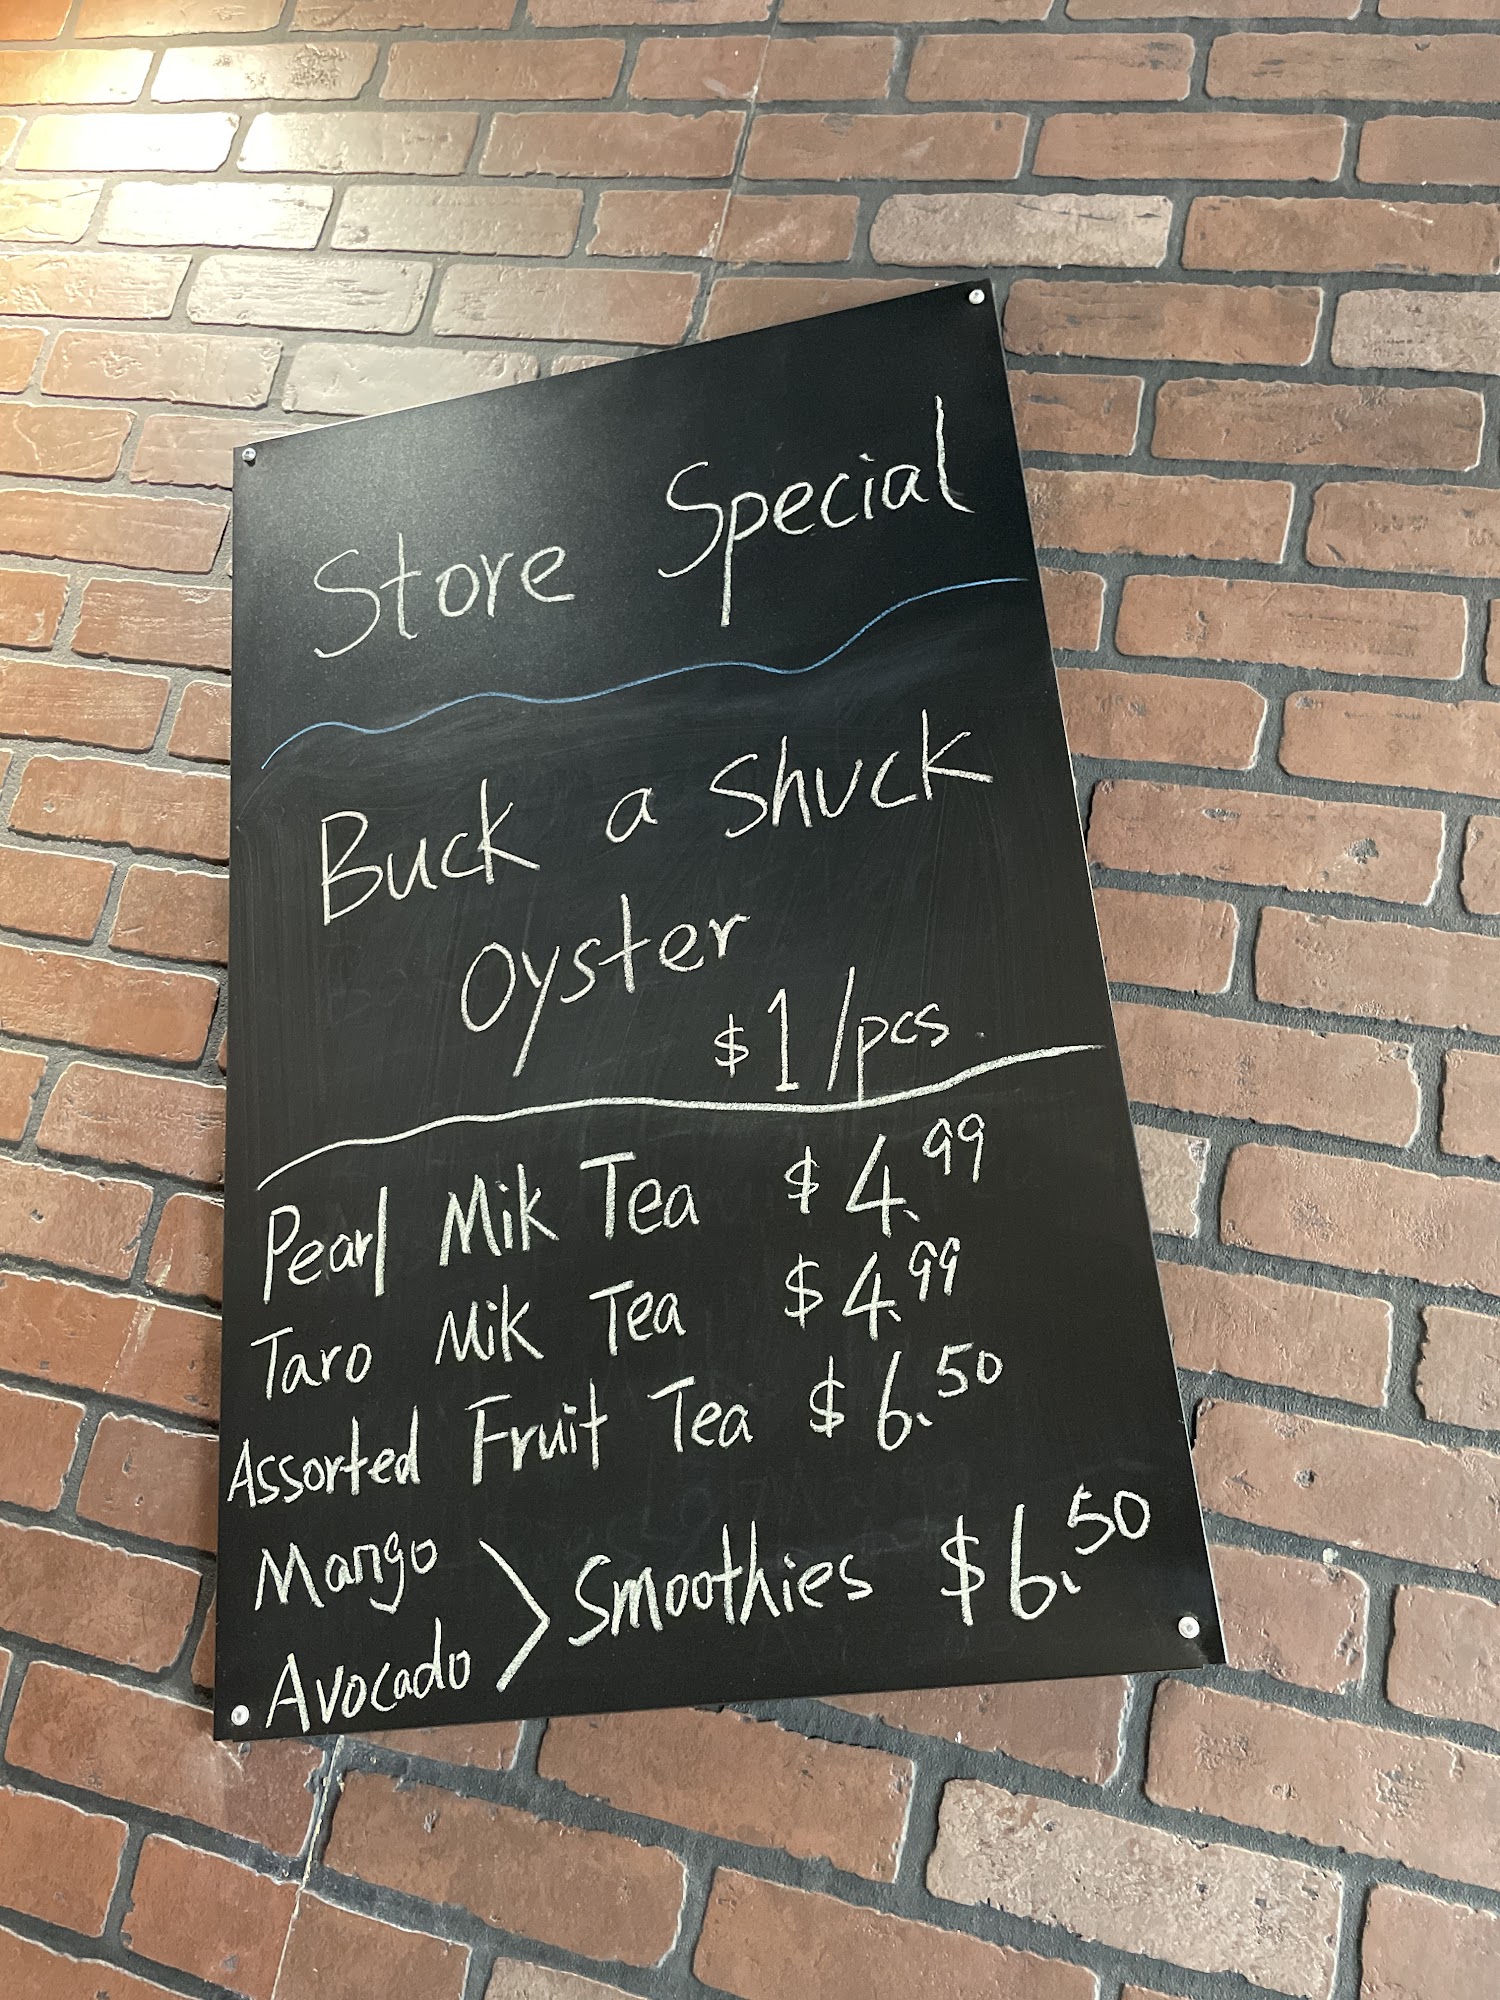 Store Special
Buck a Shuck
Oyster
$1/pcs.
Pearl Mik Tea $4.99
Taro Mik Tea $4.99
Assorted Fruit Tea $6.50
Mango
Smoothies $6.50
Avocado